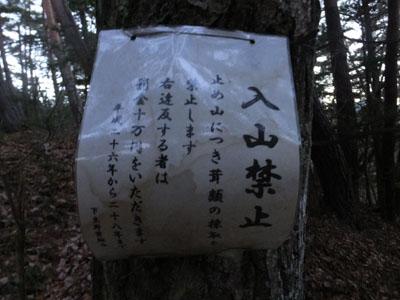 入山禁止
止め山につき茸類の採取を
禁止します
右違反する者は
罰金十万円をいただきます
平成二十六年から二十八年まで